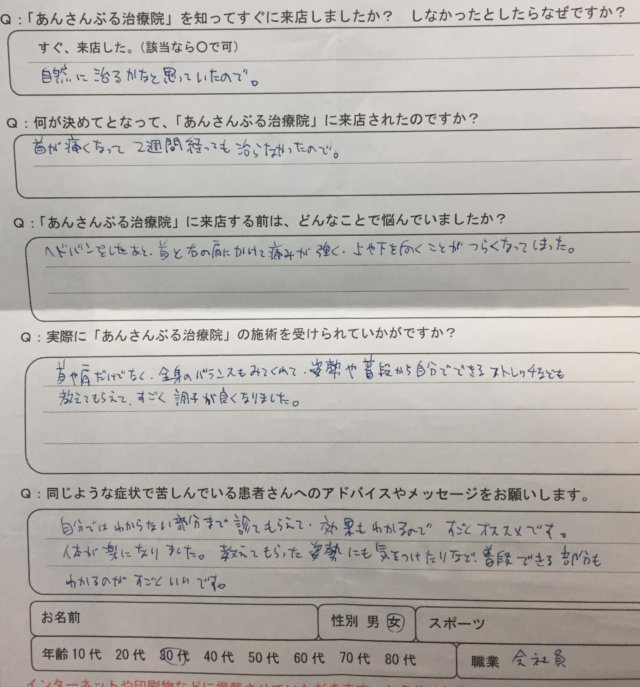 Q：「あんさんぶる治療院」を知ってすぐに来店しましたか？　しなかったとしたらなぜですか？
すぐ、来店した。（該当なら〇で可）
自然に治るかなと思っていたので。
Q：何が決めてとなって、「あんさんぶる治療院」に来店されたのですか？
首が痛くなって2週間経っても治らなかったので。
Q：「あんさんぶる治療院」に来店する前は、どんなことで悩んでいましたか？
ヘドバンをしたあと、首と右の肩にかけて痛みが強く、上や下を向くことがつらくなってしまった。
Q：実際に「あんさんぶる治療院」の施術を受けられていかがですか？
首や肩だけでなく、全身のバランスもみてくれて、姿勢や普段から自分でできるストレッチなども
教えてもらえて、すごく調子が良くなりました。
Q：同じような症状で苦しんでいる患者さんへのアドバイスやメッセージをお願いします。
自分ではわからない部分まで診てもらえて、効果もわかるのですごくオススメです。
体が楽になりました。教えてもらった姿勢にも気をつけたりなど、普段できる部分も
わかるのがすごくいいです。
お名前　性別 男 女　スポーツ
年齢 10代 20代 30代 40代 50代 60代 70代 80代　職業 会社員